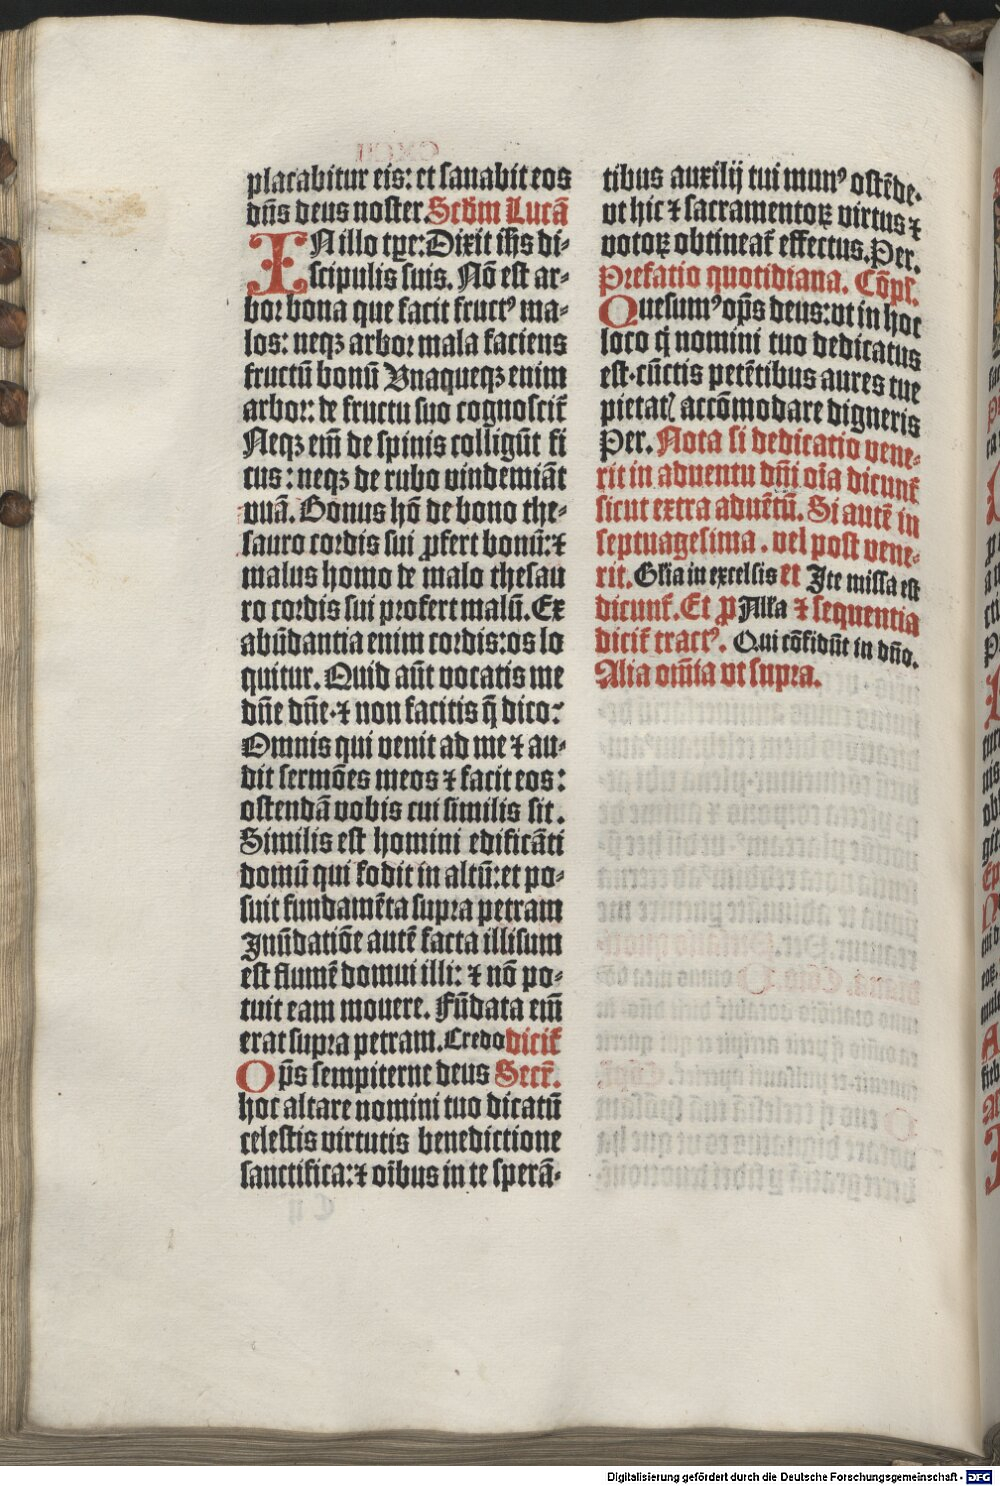 placabitur eis: et sanabit eos
dñs deus noster. Scḋm Lucã
IN illo tꝑe: Dixit ih̃s di⸗
scipulis suis. Nõ est ar⸗
bor bona que facit fructꝰ ma⸗
los: neqꝫ arbor mala faciens
fructũ bonũ Vnaqueqꝫ enim
arbor: de fructu suo cognoscit᷑
Neqꝫ em̃ de spinis colligũt fi
cus: neqꝫ de rubo vindemiãt
vuã. Bonus hõ de bono the⸗
sauro cordis sui ꝓfert bonũ: ⁊
malus homo de malo thesau
ro cordis sui profert malũ. Ex
abũdantia enim cordis: os lo
quitur. Quid aũt vocatis me
dñe dñe· ⁊ non facitis q̃ dico?
Omnis qui venit ad me ⁊ au⸗
dit sermões meos ⁊ facit eos:
ostendã vobis cui similis sit.
Similis est homini edificãti
domũ qui fodit in altũ: et po⸗
suit fundamẽta supra petram
Inũdatiõe autẽ facta illisum
est flumẽ domui illi: ⁊ nõ po⸗
tuit eam mouere. Fũdata em̃
erat supra petram. Credo dicit᷑
Oꝑ̃s sempiterne deus Secr̃.
hoc altare nomini tuo dicatũ
celestis virtutis benedictione
sanctifica: ⁊ oĩbus in te sperã⸗
tibus auxilij tui munꝰ ostẽde·
vt hic ⁊ sacramentoꝝ virtus ⁊
votoꝝ obtineat᷑ effectus. Per.
Prefatio quotidiana. Cõpl̃.
Quesumꝰ oꝑ̃s deus: vt in hoc
loco q̃ nomini tuo dedicatus
est· cũctis petẽtibus aures tue
pietatꝭ accõmodare digneris
Per. Nota si dedicatio vene⸗
rit in aduentu dñi oĩa dicunt᷑
sicut extra aduẽtũ. Si autẽ in
septuagesima. vel post vene⸗
rit. Gl̃ia in excelsis et Ite missa est
dicunt᷑. Et ꝓ All̃a ⁊ sequentia
dicit᷑ tractꝰ. Qui cõfidũt in dño.
Alia om̃ia vt supra.
Digitalisierung gefördert durch die Deutsche Forschungsgemeinschaft - DFG